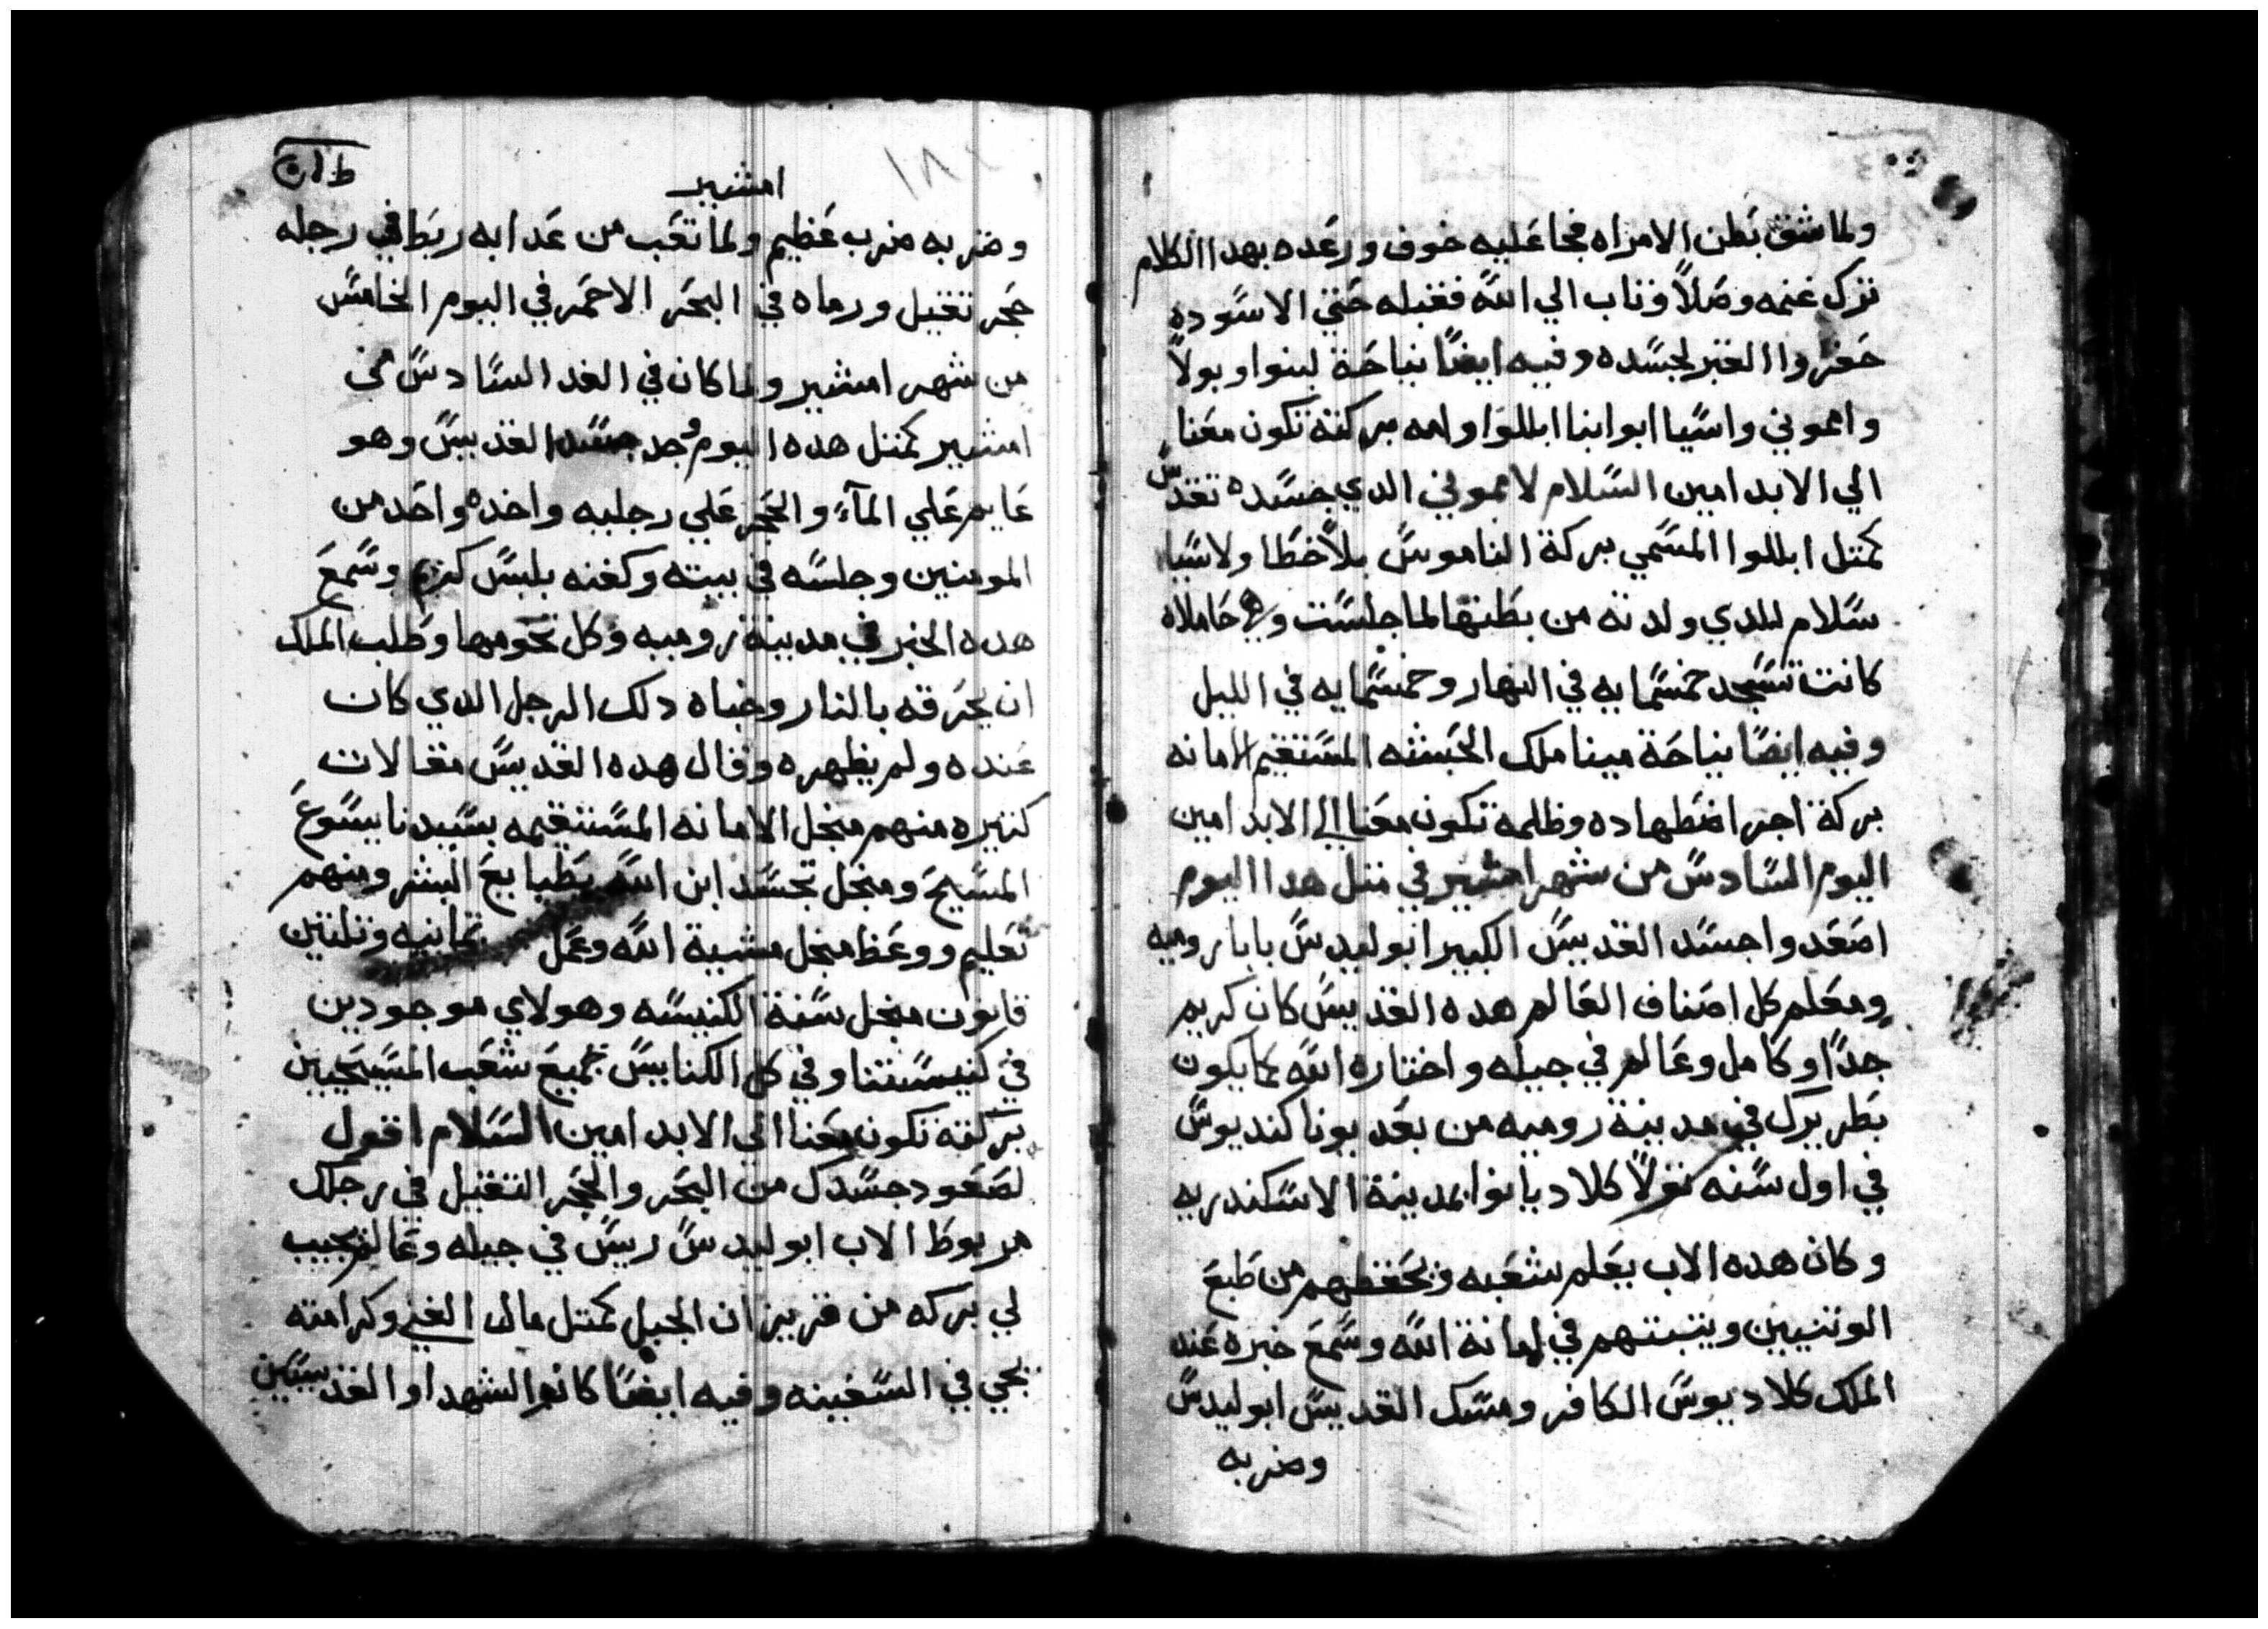 ولما شق بطن الامراه فجا عليه خوف ورعده بهدا الكلام
ترك غنمه وصلاً وتاب الي الله فقبله حتي الاسوده
حفروا القبر لجسده وفيه ايضاً نياحة لبنوا وبولا
واهموني واسيا ابو ابنا ابللوا وامه بركته تكون معنا
الي الابد امين السلام لاهموني الدي جسده تقدس
كمتل ابللوا المسمي بركة الناموس بلا خطا ولاسيا
سلام للدي ولدته من بطنها لما جلست وهي حاملاه
كانت تسجد خمسمايه في النهار وخمسمايه في الليل
وفيه ايضاً نياحة مينا ملك الحبشه المستقيم الامانه
بركة اجر اضطهاده وظلمه تكون معنا الي الابد امين
اليوم السادس من شهر امشير في متل هدا اليوم
اصعدوا جسد القديس الكبير ابوليدس بابا روميه
ومعلم كل اصناف العالم هده القديس كان كريم
جداً وكامل وعالم في جيله واختاره الله بما يكون
بطريرك في مدينة روميه من بعد بونا كنديوس
في اول سنه تولا كلاديانوا لمدينة الاسكندريه
وكان هده الاب يعلم شعبه ويحفظهم من طبع
الوتنيين ويتبتهم في امانة الله وسمع خبره عند
الملك كلاديوس الكافر ومسك القديس ابوليدس
وضربه
امشير
وضربه ضرب عظيم ولما تعب من عدابه ربط في رجله
حجر تقيل ورماه في البحر الاحمر في اليوم الخامس
من شهر امشير ولما كان في الغد السادس في
امشير كمتل هده اليوم وجد جسد القديس وهو
عايم علي المآء والحجر علي رجليه واخده واحد من
المومنين وجلسه في بيته وكفنه بلبس كريم وسمع
هده الخبر في مدينة روميه وكل تحومها وطلب الملك
ان يحرقه بالنار وخباه دلك الرجل الدي كان
عنده ولم يظهره وقال هده القديس مقالات
كتيره منهم منجل الامانه المستقيمه بسيدنا يسوع
المسيح ومنجل تجسد ابن الله بطبايع البشر ومنهم
تعليم ووعظ منجل مشية الله وعمل تمانيه وتلتين
قانون منجل سنة الكنيسه وهولاي موجودين
في كنيستنا وفي كل الكنايس جميع شعب المسيحيين
بركته تكون معنا الي الابد امين السلام اقول
لصعود جسدك من البحر والحجر التقيل في رجلك
مربوط الاب ابوليدس ريس في جيله وعالم يجيب
لي بركه من قربيزان الجبل كمتل مال الغني وكرامته
يجي في السفينه وفيه ايضاً كانوا الشهدا والقديسين